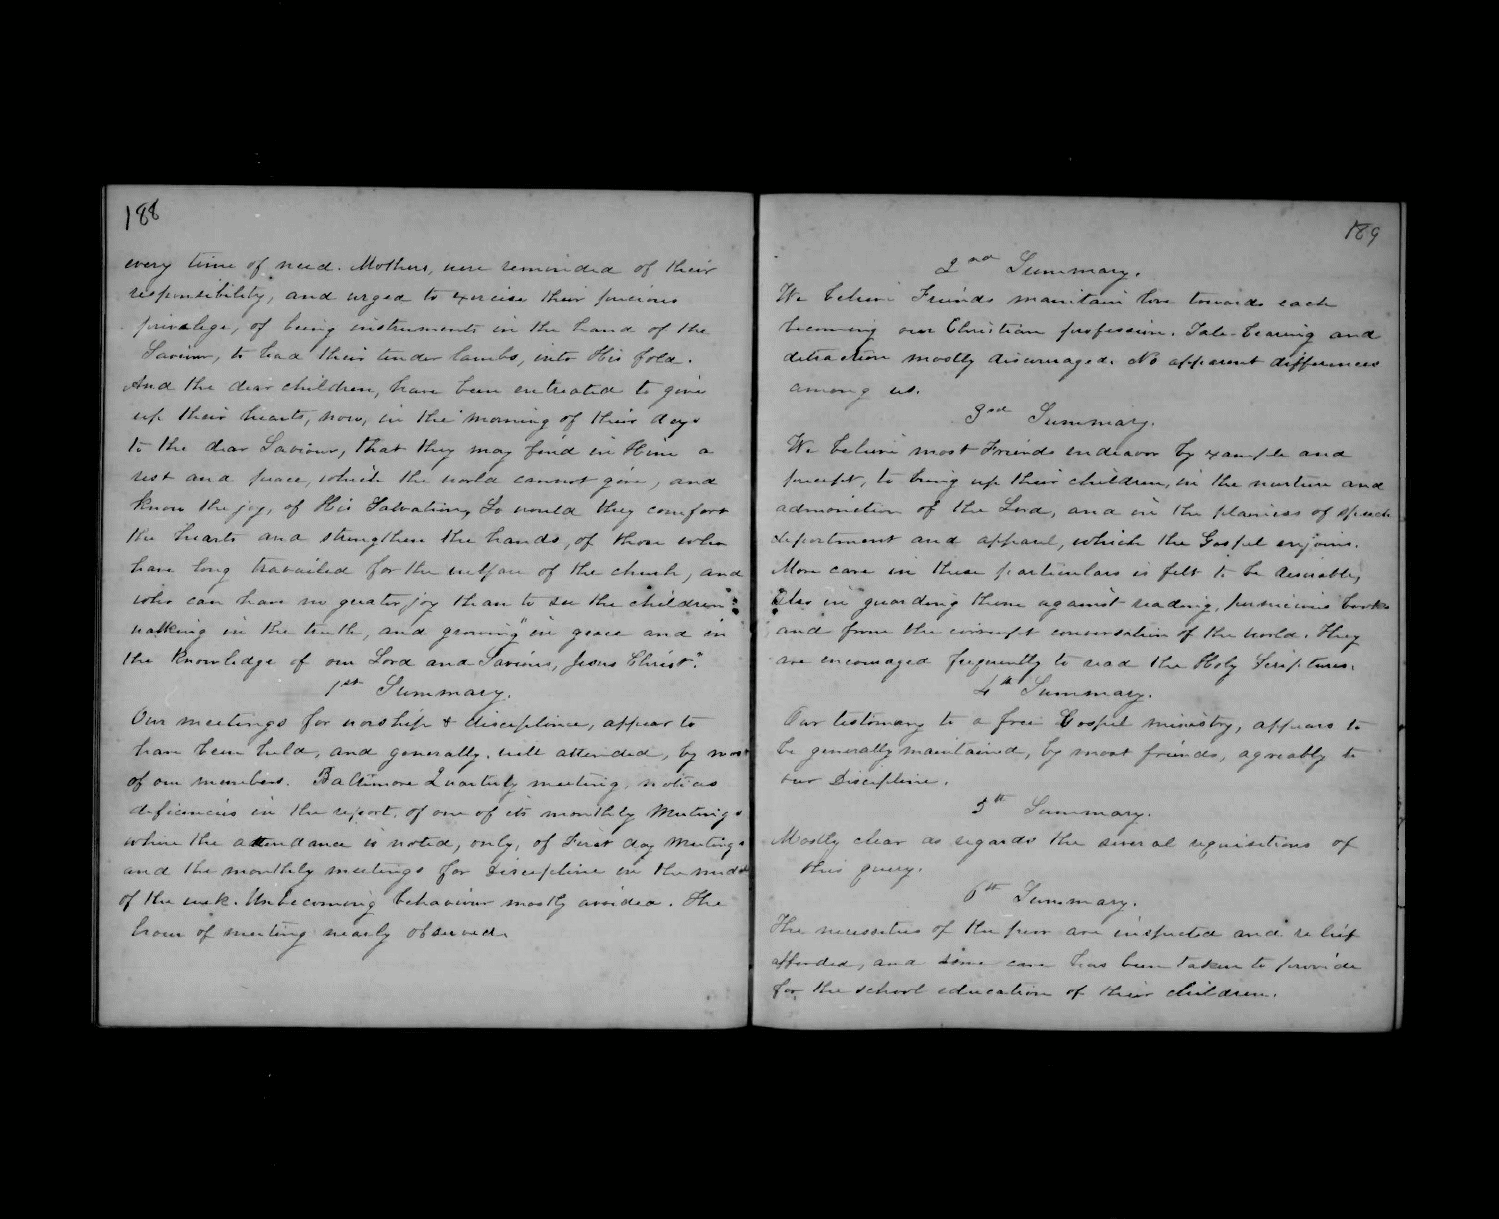 188
every time of need. Mothers, were reminded of their
responsibility, and urged to exercise their precious
privilege, of being instruments in the hand of the
Saviour, to lead their tender lambs, into His fold.
And the dear children, have been entreated to give
up their hearts, now, in the morning of their days
to the dear Saviour, that they may find in Him a
rest and peace, which the world cannot give, and
know the joy, of His Salvation, So would they comfort
the hearts and strengthen the hands, of those who
have long travailed for the welfare of the church, and
who can have no greater joy than to see the children
walking in the truth, and growing "in grace and in
the Knowledge of our Lord and Saviour, Jesus Christ".
1st Summary.
Our meetings for worship & discipline, appear to
have been held, and generally, well attended, by most
of our members. Baltimore Quarterly meeting, notices
deficiencies in the report, of one of its monthly Meetings
where the attendance is noted, only, of First day Meetings
and the monthly meetings for Discipline in the midst
of the week. Unbecoming behaviour mostly avoided. The
hour of meeting nearly observed.
189
2nd Summary.
We believe Friends maintain love towards each
becoming our Christian profession. Tale-bearing and
detraction mostly discouraged. No apparent differences
among us.
3rd Summary.
We believe most Friends endeavor by example and
precept, to bring up their children, in the nurture and
admonition of the Lord, and in the plainess of speech
deportment and apparel, which the Gospel enjoins.
More care in these particulars is felt to be desirable,
Also in guarding them against reading, pernicious books
and from the corrupt conversation of the world. They
are encouraged frequently to read the Holy Scriptures.
4th Summary.
Our testimony to a free Gospel ministry, appears to
be generally maintained, by most friends, agreably to
our Discipline.
5th Summary.
Mostly clear as regards the several requisitions of
this query.
6th Summary.
The necessities of the poor are inspected and relief
afforded, and some care has been taken to provide
for the school education of their children.